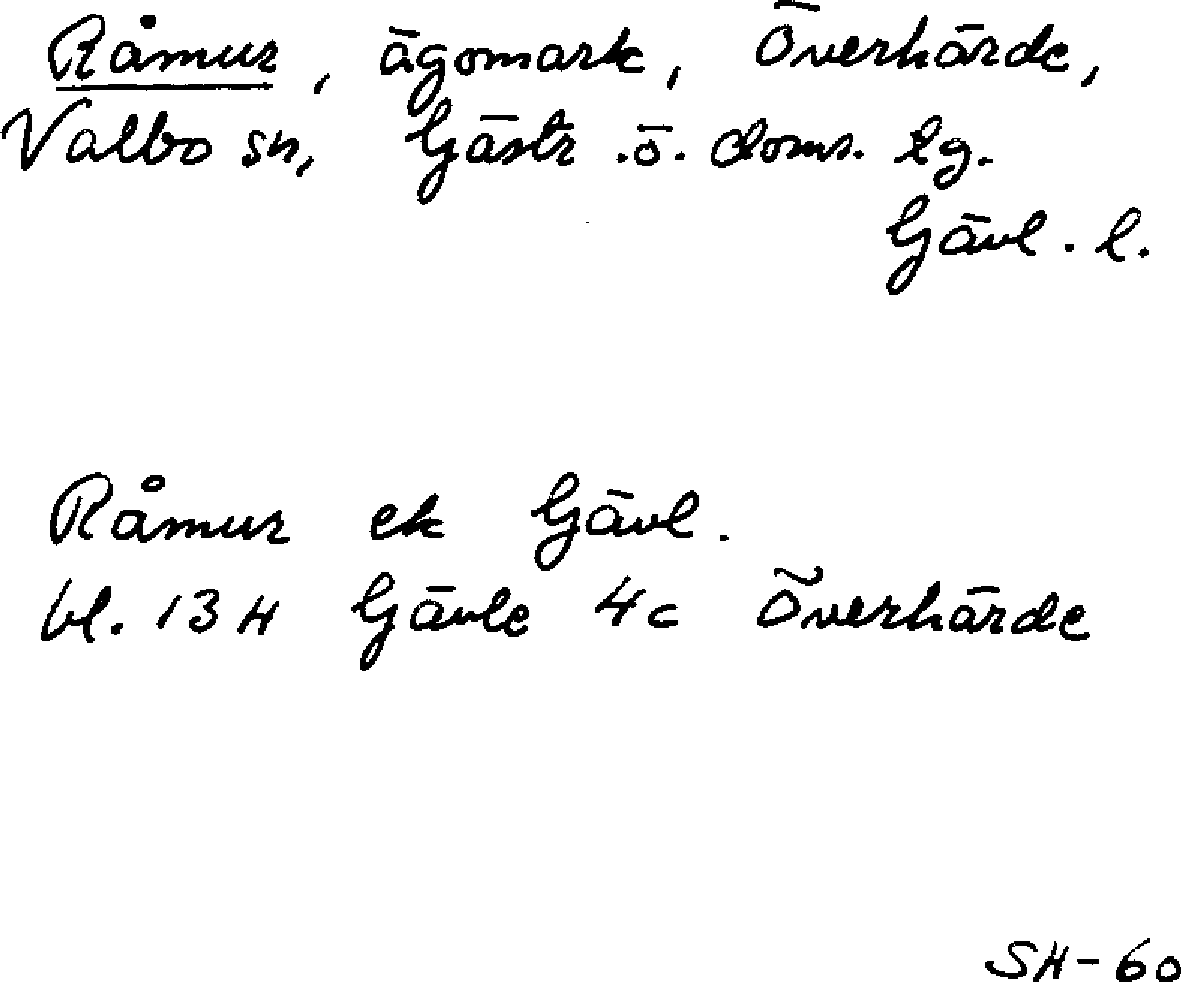 Råmur, ägomark, Överhärde,
Valbo sn, Gästr. ö. doms. tg.
Gävl. l.
Råmur ek Gävl.
bl. 13 H Gävle 4c Överhärde
SH-60